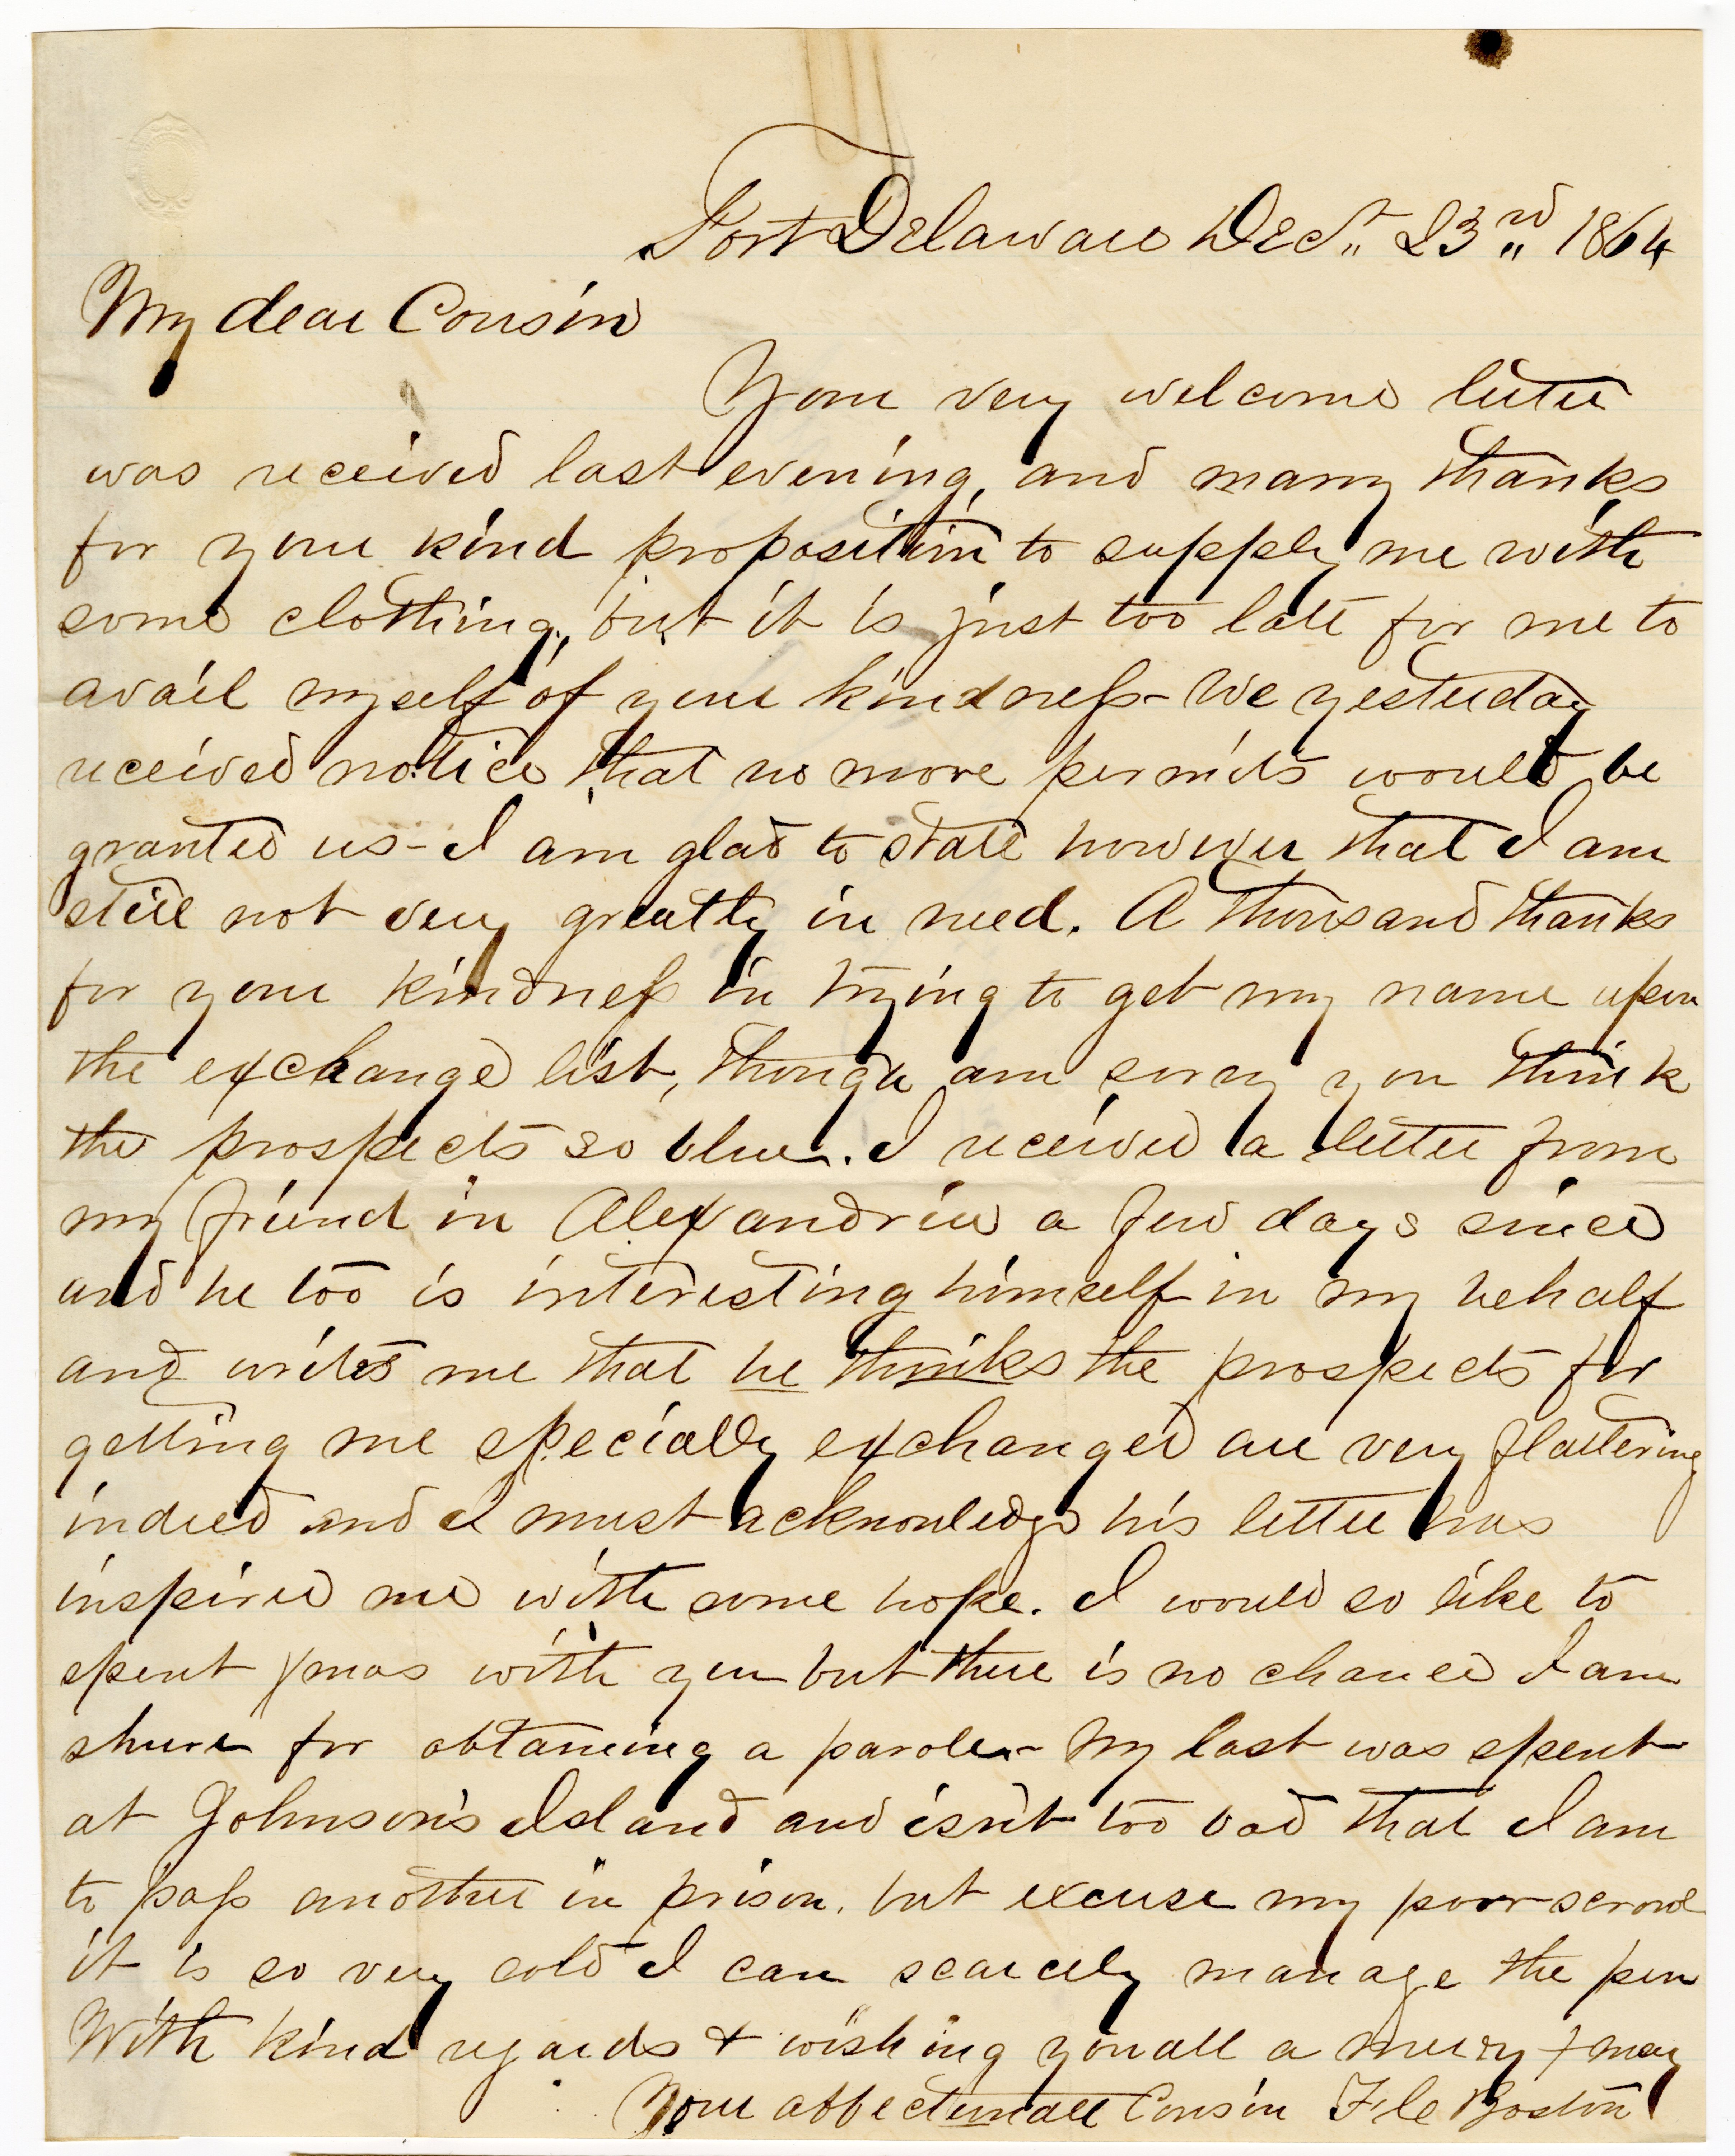 Fort Delaware Dec. 23rd 1864
My dear Cousin
Your very welcome letter
was received last evening, and many thanks
for your kind proposition to supply me with
some clothing, but it is just too late for me to
avail myself of your kindness - We yesterday
received notice that no more permits would be
granted us - I am glad to state however that I am
still not very greatly in need. A thousand thanks
for your kindness in trying to get my name upon
the exchange list, though am sorry you think
the prospects so blue. I received a letter from
my friend in Alexandria a few days since
and he too is interesting himself in my behalf
and writes me that he thinks the prospects for
getting me specially exchanged are very flattering
indeed and I must acknowledge his letter has
inspired me with some hope. I would so like to
spent Xmas with you but there is no chance I am
shure for obtaining a parole - My last was spent
at Johnson's Island and isn't too bad that I am
to pass another in prison. but excuse my poor scrawl
it is so very cold I can scarcely manage the pen
With kind regards & wishing you all a merry Xmas
Your affectionate Cousin F. Le Boston